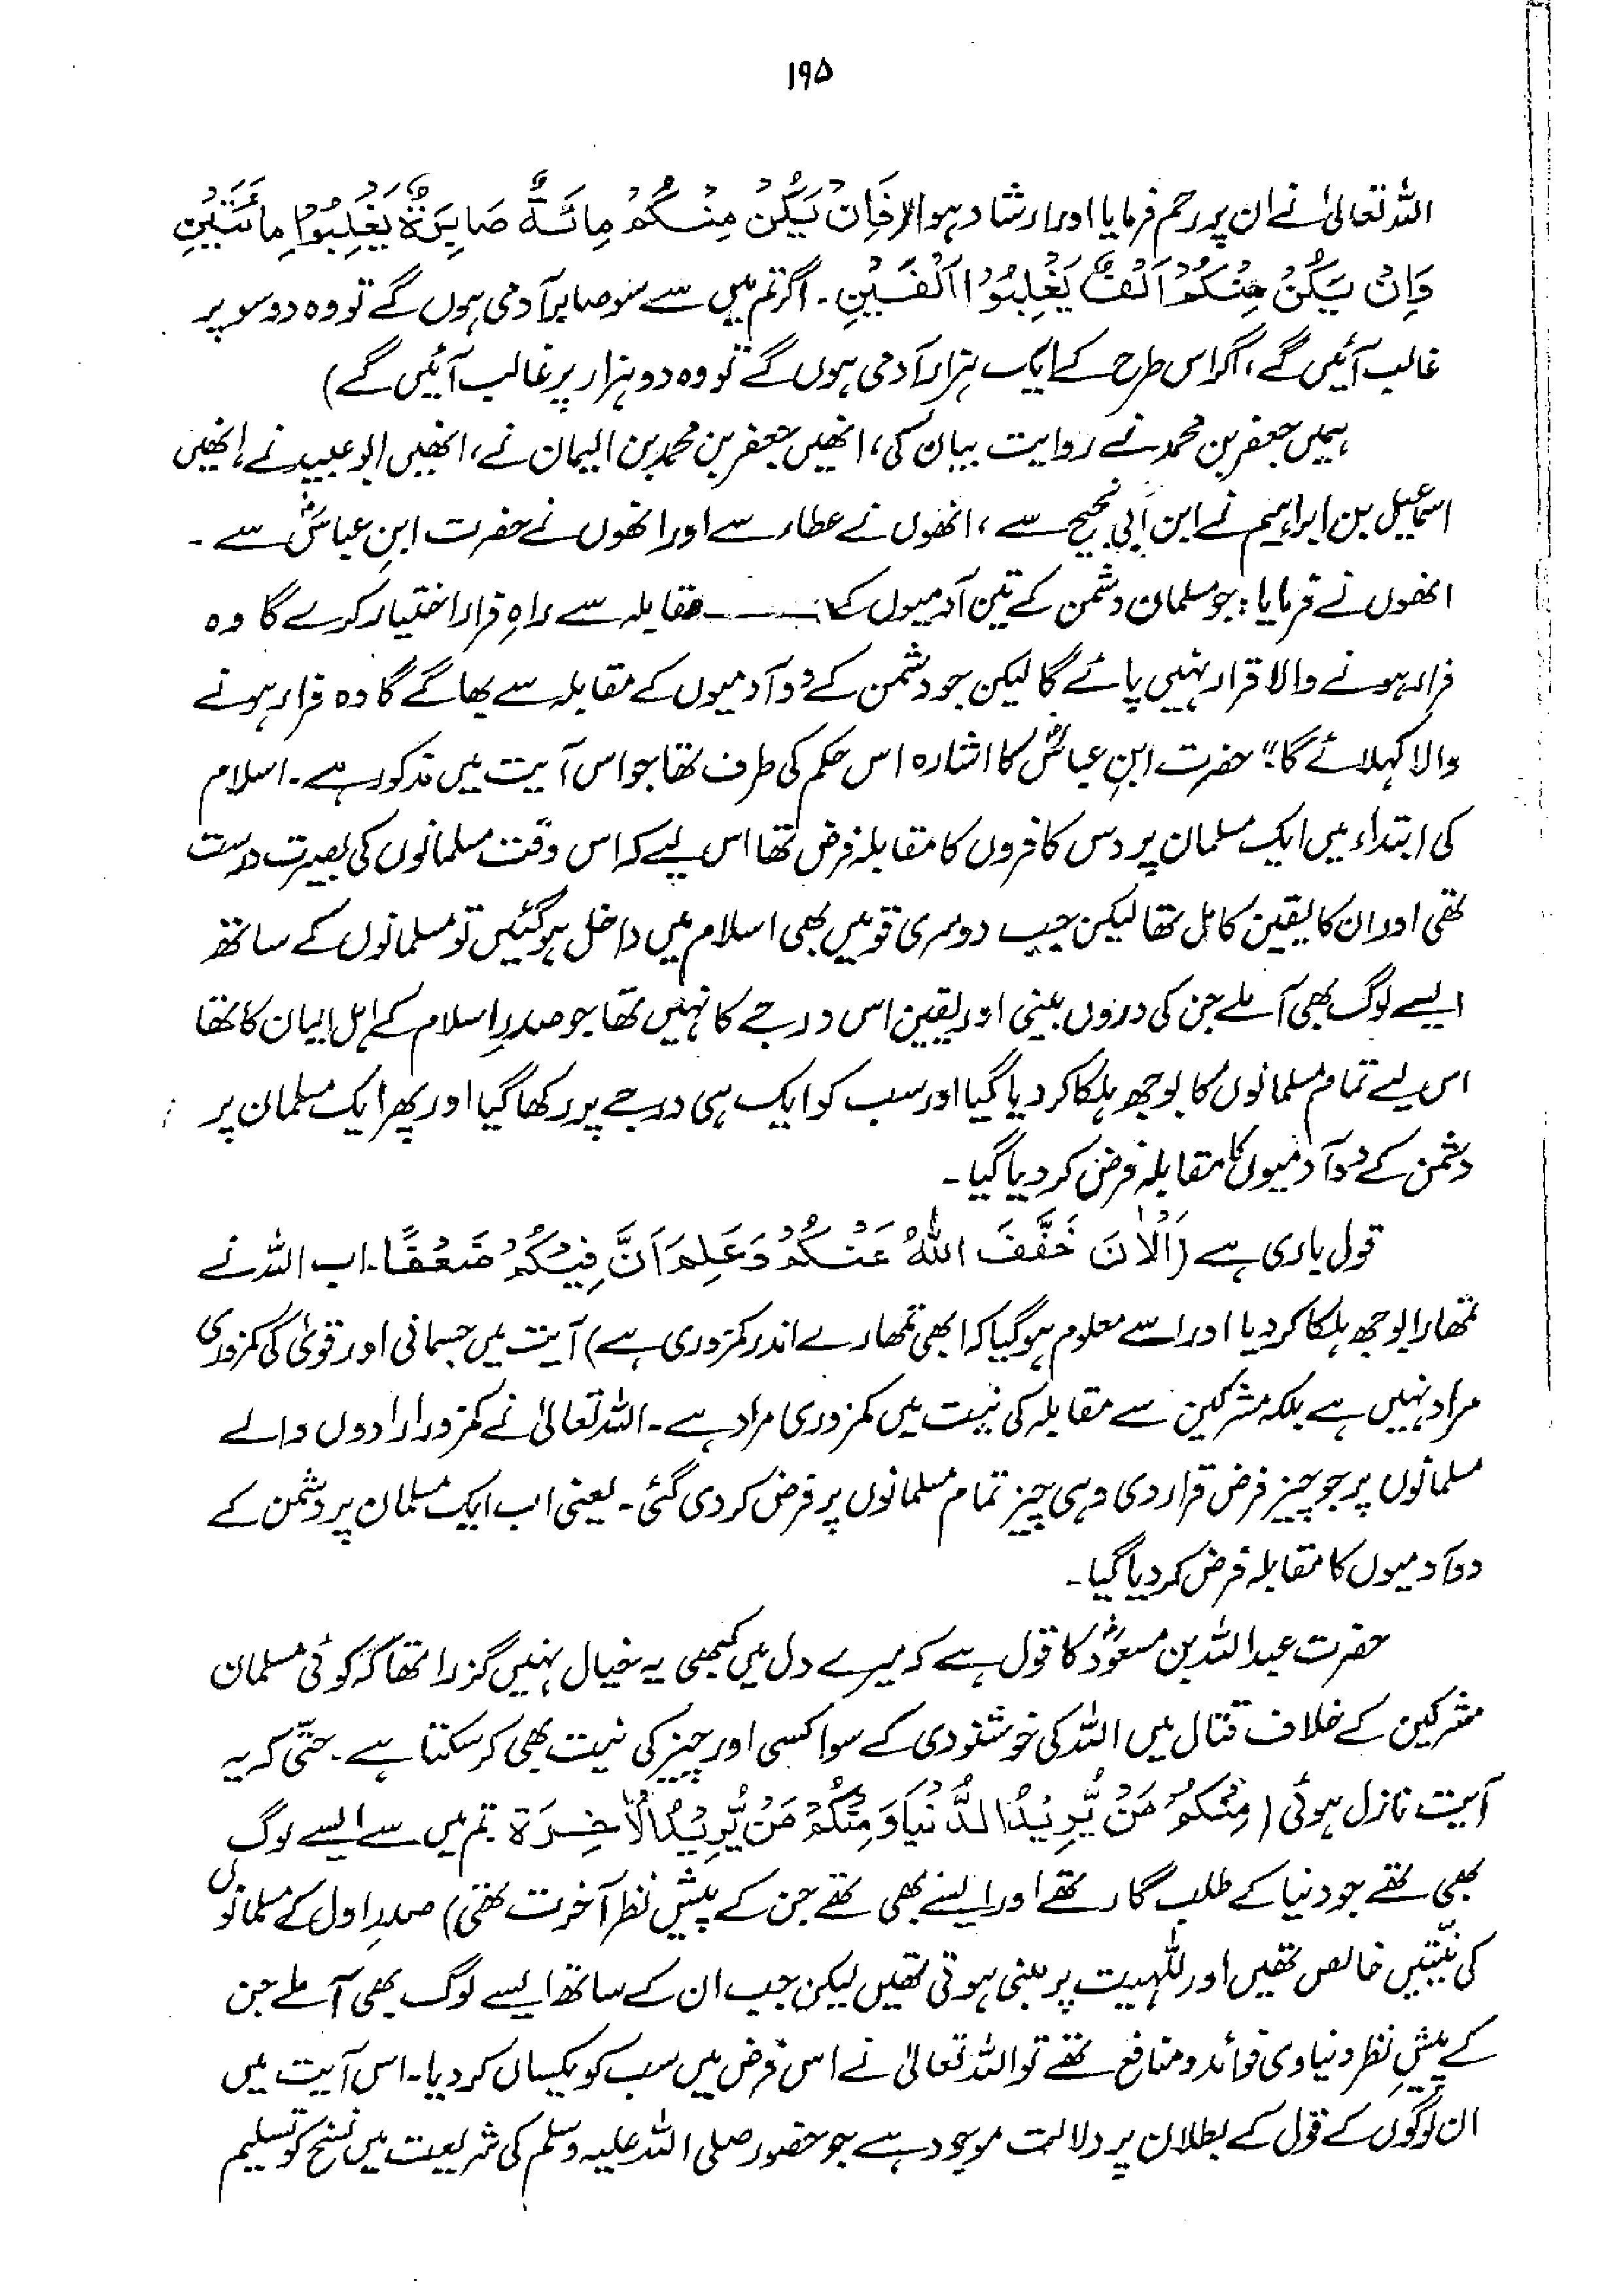 ۱۹۵
اللہ تعالیٰ نے ان پر رحم فرمایا اور ارشاد ہوا (فَاِنْ يَّكُنْ مِنْكُمْ مِائَةٌ صَابِرَةٌ يَغْلِبُوْا مِائَتَيْنِ
وَاِنْ يَكُنْ مِنْكُمْ اَلْفٌ يَغْلِبُوْا اَلْفَيْنِ ۔ اگر تم میں سے سو صابر آدمی ہوں گے تو وہ دو سو پر
غالب آئیں گے، اگر اس طرح کے ایک ہزار آدمی ہوں گے تو وہ دو ہزار پر غالب آئیں گے)
ہمیں جعفر بن محمد نے روایت بیان کی، انھیں جعفر بن محمد بن الیمان نے، انھیں ابو عبید نے، انھیں
اسماعیل بن ابراہیم نے ابن ابی نجیح سے، انھوں نے عطاء سے اور انھوں نے حضرت ابنِ عباسؓ سے ۔
انھوں نے فرمایا: جو مسلمان دشمن کے تین آدمیوں کے ــــــ مقابلہ سے راہِ فرار اختیار کرے گا وہ
فرار ہونے والا قرار نہیں پائے گا لیکن جو دشمن کے دو آدمیوں کے مقابلہ سے بھاگے گا وہ فرار ہونے
والا کہلائے گا“ حضرت ابنِ عباسؓ کا اشارہ اس حکم کی طرف تھا جو اس آیت میں مذکور ہے۔ اسلام
کی ابتداء میں ایک مسلمان پر دس کافروں کا مقابلہ فرض تھا اس لیے کہ اس وقت مسلمانوں کی بصیرت درست
تھی اور ان کا یقین کامل تھا لیکن جب دوسری قومیں بھی اسلام میں داخل ہو گئیں تو مسلمانوں کے ساتھ
ایسے لوگ بھی آملے جن کی دروں بینی اور یقین اس درجے کا نہیں تھا جو صدرِ اسلام کے اہل ایمان کا تھا
اس لیے تمام مسلمانوں کا بوجھ ہلکا کر دیا گیا اور سب کو ایک ہی درجے پر رکھا گیا اور پھر ایک مسلمان پر
دشمن کے دو آدمیوں کا مقابلہ فرض کر دیا گیا ۔
قول باری ہے (اَلْاٰنَ خَفَّفَ اللّٰهُ عَنْكُمْ وَعَلِمَ اَنَّ فِيْكُمْ ضَعْفًا۔ اب اللہ نے
تمھارا بوجھ ہلکا کر دیا اور اسے معلوم ہو گیا کہ ابھی تمھارے اندر کمزوری ہے) آیت میں جسمانی اور قویٰ کی کمزوری
مراد نہیں ہے بلکہ مشرکین سے مقابلہ کی نیت میں کمزوری مراد ہے ۔ اللہ تعالیٰ نے کمزور ارادوں والے
مسلمانوں پر جو چیز فرض قرار دی وہی چیز تمام مسلمانوں پر فرض کر دی گئی ۔ یعنی اب ایک مسلمان پر دشمن کے
دو آدمیوں کا مقابلہ فرض کر دیا گیا ۔
حضرت عبداللہ بن مسعودؓ کا قول ہے کہ میرے دل میں کبھی یہ خیال نہیں گزرا تھا کہ کوئی مسلمان
مشرکین کے خلاف قتال میں اللہ کی خوشنودی کے سوا کسی اور چیز کی نیت بھی کر سکتا ہے ۔ حتّٰی کہ یہ
آیت نازل ہوئی (مِنْكُمْ مَنْ يُّرِيْدُ الدُّنْيَا وَمِنْكُمْ مَنْ يُّرِيْدُ الْاٰخِرَةَ تم میں سے ایسے لوگ
بھی تھے جو دنیا کے طلب گار تھے اور ایسے بھی تھے جن کے پیشِ نظر آخرت تھی) صدرِ اول کے مسلمانوں
کی نیّتیں خالص تھیں اور للّٰہیت پر مبنی ہوتی تھیں لیکن جب ان کے ساتھ ایسے لوگ بھی آملے جن
کے پیشِ نظر دنیاوی فوائد و منافع تھے تو اللہ تعالیٰ نے اس فرض میں سب کو یکساں کر دیا ۔ اس آیت میں
ان لوگوں کے قول کے بطلان پر دلالت موجود ہے جو حضور صلی اللہ علیہ وسلم کی شریعت میں نسخ کو تسلیم